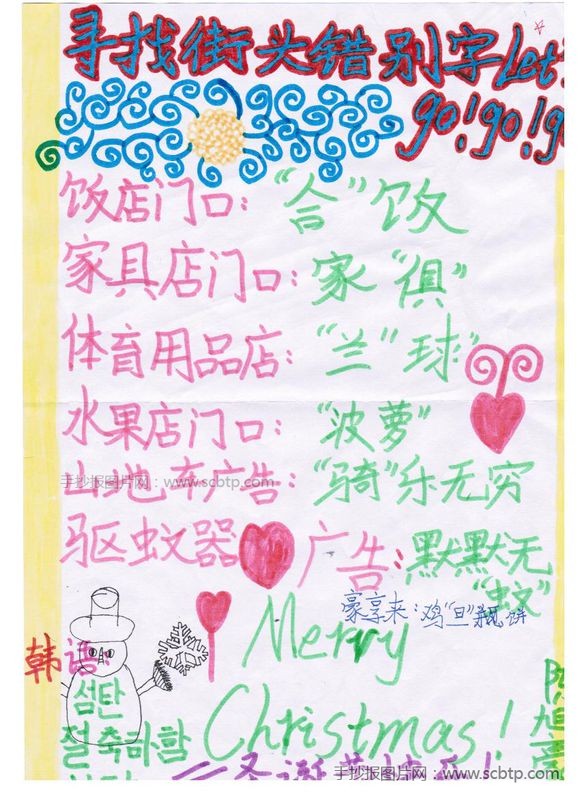 寻找街头错别字Let'
go!go!g
饭店门口:“合”饭
家具店门口:家“俱”
体育用品店:“兰”球”
水果店门口:“波萝”
山地车广告:“骑”乐无穷
手抄报图片网:www.scbtp.com
驱蚊器 广告:默默无“蚊”
豪享来:鸡“旦” 饼
Merry
韩语:
섬탄
절축하함
Christmas!
手抄报图片网:www.scbtp.com